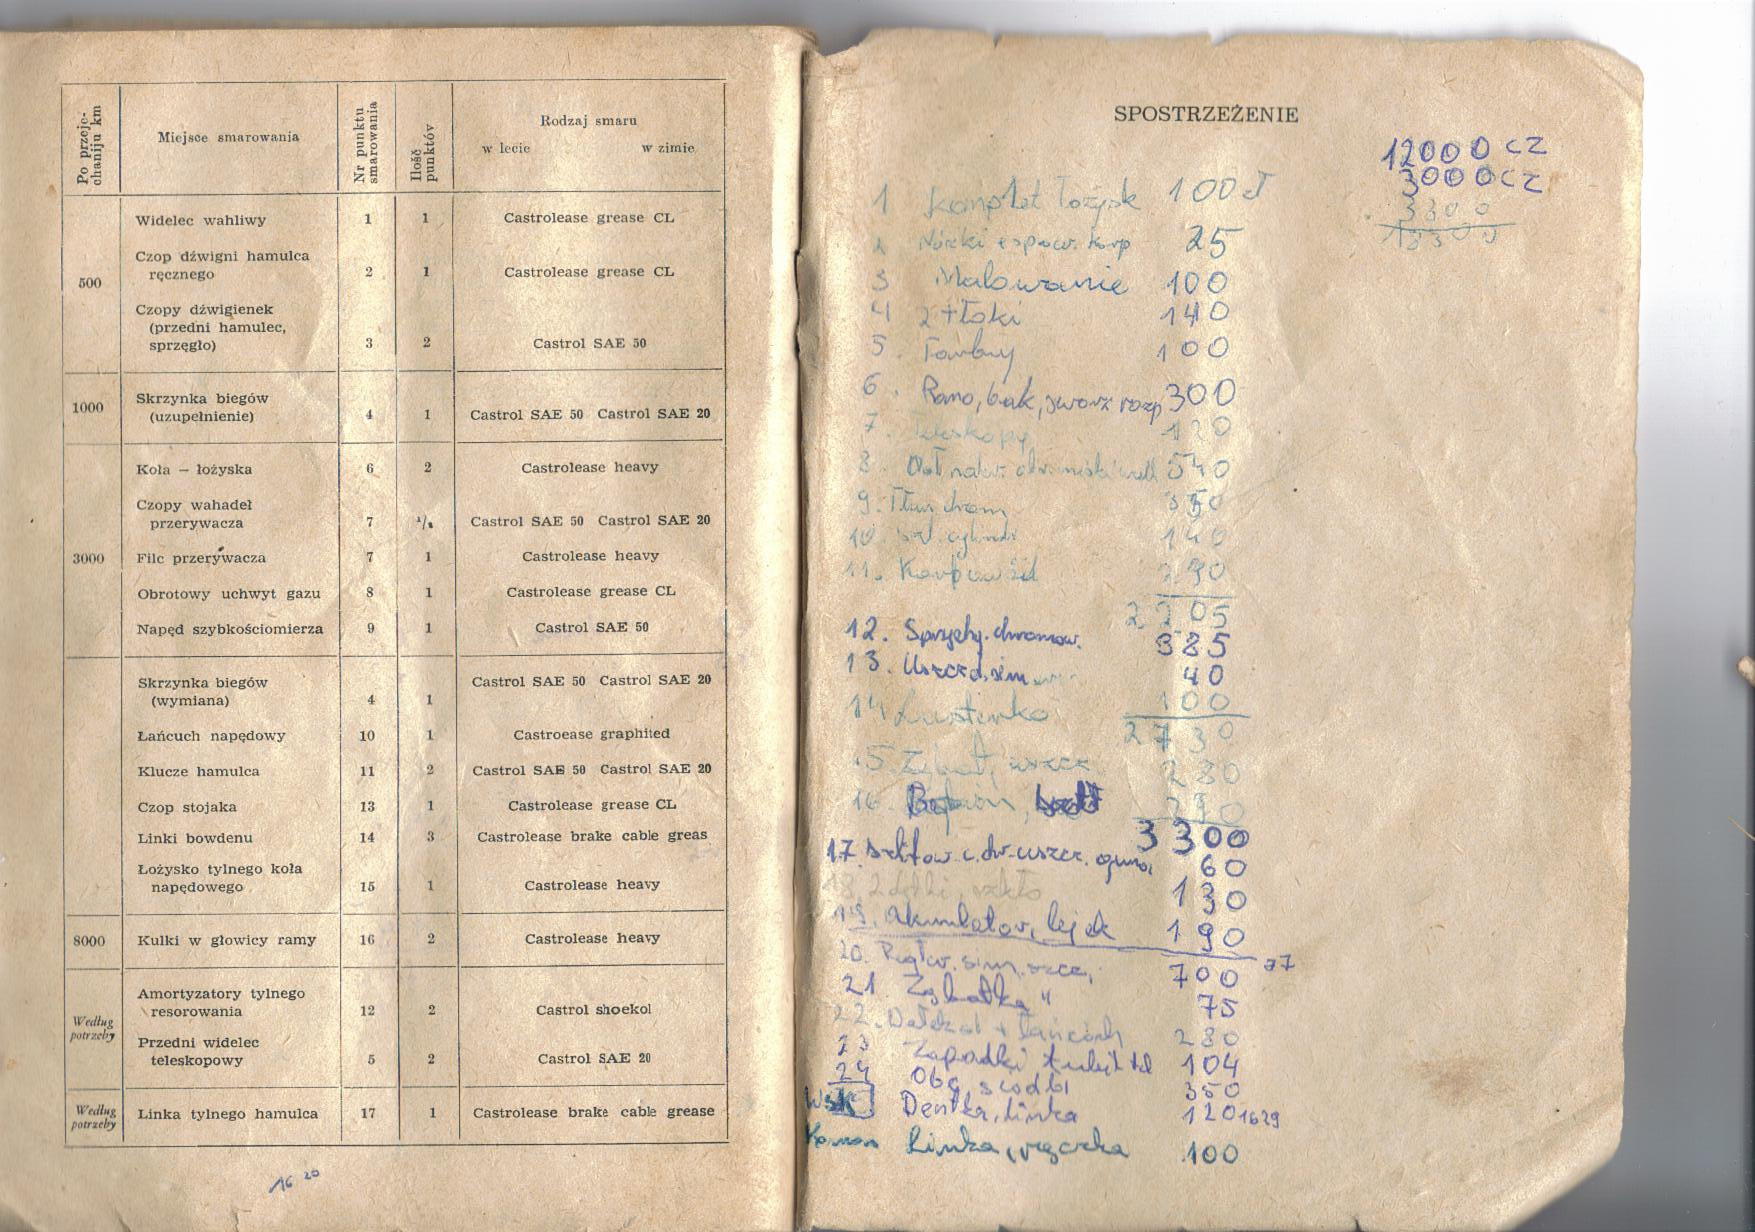 Po przeje-
chaniju km
Miejsce smarowania
Nr punktu
smarowania
Ilość
punktów
Rodzaj smaru
w lecie w zimie
500
Widelec wahliwy 1 1 Castrolease grease CL
Czop dźwigni hamulca
ręcznego 2 1 Castrolease grease CL
Czopy dźwigienek
(przedni hamulec,
sprzęgło) 3 2 Castrol SAE 50
1000
Skrzynka biegów
(uzupełnienie) 4 1 Castrol SAE 50 Castrol SAE 20
3000
Koła — łożyska 6 2 Castrolease heavy
Czopy wahadeł
przerywacza 7 Castrol SAE 50 Castrol SAE 20
Filc przerywacza 7 1 Castrolease heavy
Obrotowy uchwyt gazu 8 1 Castrolease grease CL
Napęd szybkościomierza 9 1 Castrol SAE 50
Skrzynka biegów Castrol SAE 50 Castrol SAE 20
(wymiana) 4 1
Łańcuch napędowy 10 1 Castroease graphited
Klucze hamulca 11 2 Castrol SAE 50 Castrol SAE 20
Czop stojaka 13 1 Castrolease grease CL
Linki bowdenu 14 3 Castrolease brake cable greas
Łożysko tylnego koła
napędowego 15 1 Castrolease heavy
8000
Kulki w głowicy ramy 16 2 Castrolease heavy
Według
potrzeby
Amortyzatory tylnego
resorowania 12 2 Castrol shoekol
Przedni widelec
teleskopowy 5 2 Castrol SAE 20
Według
potrzeby
Linka tylnego hamulca 17 1 Castrolease brake cable grease
16 20
SPOSTRZEŻENIE
12000 CZ
3000 CZ
3300
18300
1 Komplet łożysk 100 zł
2 korp 25
3 Malowanie 100
4 2 tłoki 140
5. Farby 100
6. Rama, bak, 300
7. Teleskopy 120
8. 540
9. Tłum chrom 350
10. cylindr 140
11. 290
2205
12. Sprężyny chromow. 385
13. Uszcz. sim 40
14 Lusterko 100
2730
15. uszcz. 280
16. 290
3300
17. uszcz. gum. 60
18. 2 szkło 130
19. Akumlator, lejek 190
20. sim. szcz. 700
21. Zębatka " 75
22. + łańcuch 280
23 Zapadki 104
24 350
Wsk Dentka, linka 120 1629
Linka, rączka 100